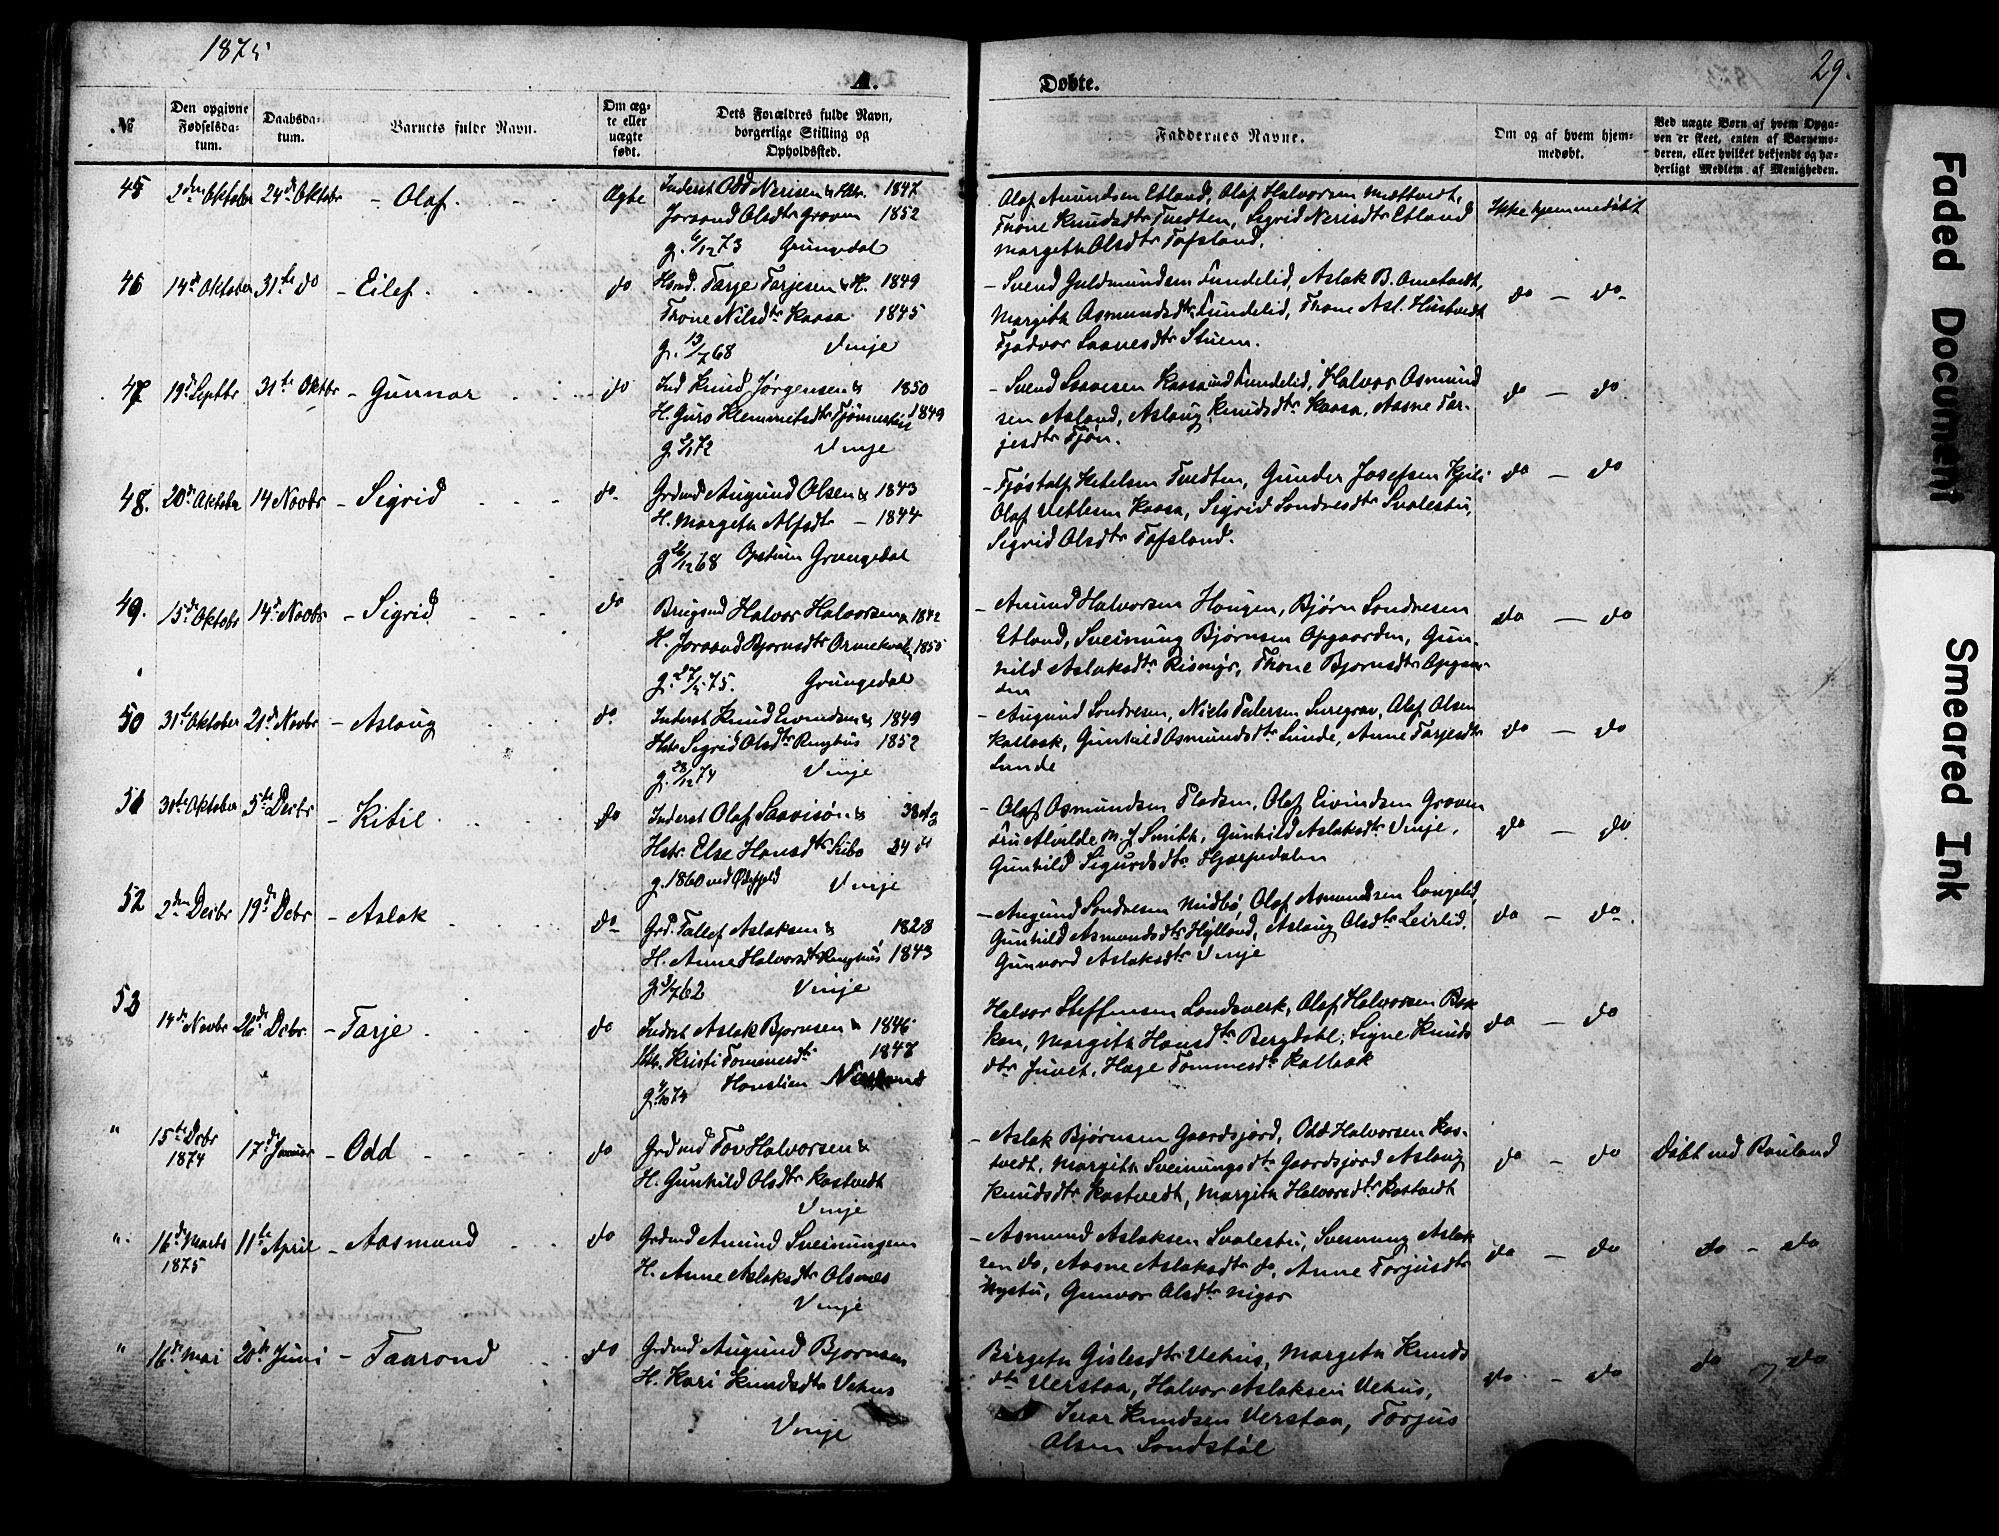 1875
29.
A. Døbte.
№
Den opgivne Fødselsdatum.
Daabsdatum.
Barnets fulde Navn.
Om ægte eller uægte født.
Dets Forældres fulde Navn, borgerlige Stilling og Opholdssted.
Faddernes Navne.
Om og af hvem hjemmedøbt.
Ved uægte Børn af hvem Opgaven er skeet, enten af Barnemoderen, eller hvilket bekjendt og hæderligt Medlem af Menigheden.
45 2den Oktober 24de Oktobr - Olaf. Ægte
Inderst Odd Nerisen & Hstr. 1847
Joraand Olsdtr Groven 1852
g. 6/12 73 Grungedal
Olaf Amundsen Edland, Olaf Halvorsen Midtveit,
Thone Knudsdtr Tvedten, Sigrid Nerisdtr Edland
Margita Olsdtr Tofsland.
Ikke hjemmedøbt
46 14de Oktober 31te do - Eilef. do
Tarje Tarjesen & H. 1849
Thone Nilsdtr Kaasa 1845
g. 13/7 68 Vinje
- Svend Guldmundsen Lundelid, Aslak B.
Margith Asmundsdtr Lundelid, Thone Asl. Hustvedt
do - do.
47 19de Septbr 31te Oktbr - Gunnar do
Ind Knud Jørgensen & 1850
H. Guro Klemmetsdtr 1849
72 Vinje
- Svend Kaasa Lundelid, Halvor Osmund
sen Asland, Aslaug Knudsdtr Kaasa, Aasne Tar-
jesdtr Tjøn.
do - do.
48. 20de Oktober 14 Novbr - Sigrid do.
Grdmd Augund Olsen & 1843
H. Margita Alfsdtr - 1844
g 26/12 68 Grungedal
- Fjøstolf Ketelsen Tvedten, Gunder Josefsen
Olaf Vetlesen Kaasa, Sigrid Sondresdtr Svalestu,
Sigrid Olsdtr Tofsland.
do - do
49. 15de Oktobr 14de Novbr - Sigrid do
Halvor Halvorsen & 1842
H. Joraand Bjørnsdtr 1855
75. Grungedal
- Amund Halvorsen Haugen, Bjørn Sondresen
Edland, Sveinung Bjørnsen Opgaarden, Gun-
hild Aslaksdtr Rismyr, Thone Bjørnsdtr Opgaar-
den
do - do
50 31te Oktober 21de Novbr - Aslaug do.
Inderst Knud Eivindsen & 1849
Hstr Sigrid Olsdtr Ringhus 1852
g. 28/12 74 Vinje
- Augund Sondresen, Niels Pedersen, Olaf Olsen
Gunhild Osmundsdtr Lunde, Anne Tarjesdtr
Lunde
do - do
51 30te Oktober 5te Decbr - Kitil. do
Inderst Olaf & 38
Hstr. Else Hansdtr 34
g. 1860 Vinje
- Olaf Osmundsen, Olaf Eivindsen Groven
Fru Alvilde M. J. Smith, Gunhild Aslaksdtr Vinje,
Gunhild Sigurdsdtr Hjærpedalen
do - do.
52 2den Decbr 19de Dcbr - Aslak do
Grd. Tallef Aslaksen & 1828
H. Anne Halvorsdtr Ringhus 1843
62 Vinje
- Augund Sondresen Midbø, Olaf Asmundsen Langelid,
Gunhild Asmundsdtr Hylland, Aslaug Olsdtr Leirlid,
Gunvord Aslaksdtr Vinje
do - do.
53 14de Novbr 26de Dcbr - Tarje. do
Inderst Aslak Bjørnsen & 1846
Hstr. Kristi Tommesdtr 1847
74
Halvor Steffensen Landsverk, Olaf Halvorsen Bak
ken, Margith Hansdtr Bergdahl, Signe Knuds
dtr Juvet, Hæge Tommesdtr
do - do
" 15te Dcbr 1874 17de Januar - Odd do
Grdmd Tov Halvorsen &
H. Gunhild Olsdtr Kostvedt
Vinje
- Aslak Bjørnsen Gaardsjord, Odd Halvorsen Kos-
tvedt, Margith Sveinungsdtr Gaardsjord Aslaug
Knudsdtr Kostvedt, Margith Halvorsdtr Kostvedt
do - do
Døbt ved Rauland
" 16de Marts 1875 11te April - Aasmund do
Grdmd Amund Sveinungsen
H. Anne Aslaksdtr Olsnes
Vinje
- Asmund Aslaksen Svalestu, Sveinung Aslak
sen do, Aasne Aslaksdtr do, Anne Torjusdtr
Nystu, Gunvor Olsdtr
do - do
do - do
" 16de Mai 20de Juni - Taarond do
Grdmd Augund Bjørnsen
H. Kari Knudsdtr Vehus
Vinje
Birgitu Gislesdtr Vehus, Margita Knuds
dtr Verstaa, Halvor Aslaksen Vehus,
Ivar Knudsen Verstaa, Torjus
Olsen Sondstøl
do - do
do - do
Faded Document
Smeared Ink